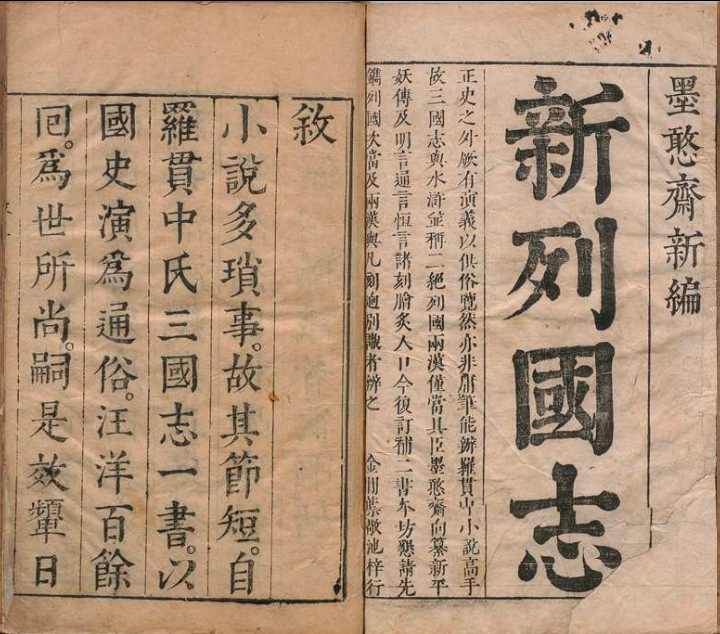 墨憨齋新編
新列國志
正史之外厥有演義以供俗覽然亦非庸筆能辦羅貫中小說高手
故三國志與水滸並稱二絕列國兩漢僅當具臣墨憨齋向纂新平
妖傳及明言通言恒言諸刻膾炙人口今復訂補二書本坊懇請先
鐫列國次當及兩漢與凡刻迥別識者辨之 金閶葉敬池梓行
敘
小說多瑣事。故其節短。自
羅貫中氏三國志一書。以
國史演爲通俗。汪洋百餘
囘。爲世所尚。嗣是效顰日